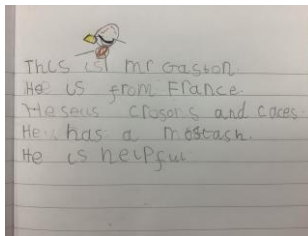 This is mr Gaston.
He is from France.
He seus crosons and caces.
He has a mostash.
He is helpful.